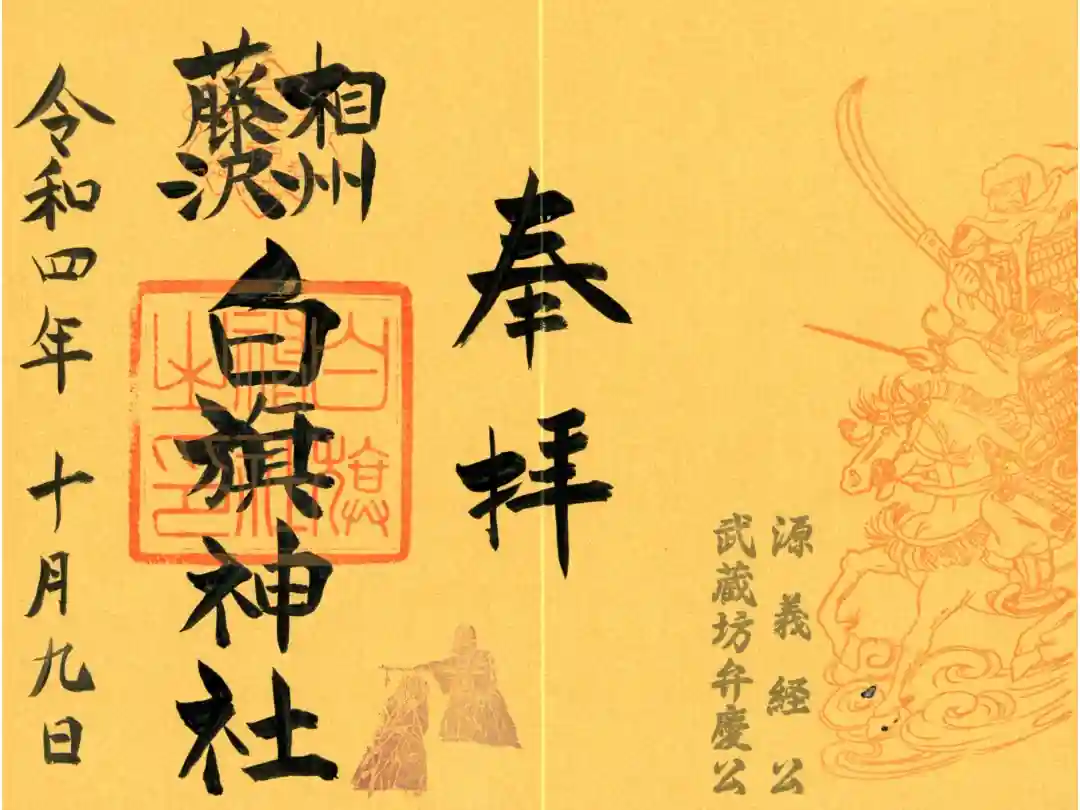 源義経公
武蔵坊弁慶公
奉拝
相州
藤沢
白旗神社
白旗
神社
之印
令和四年十月九日